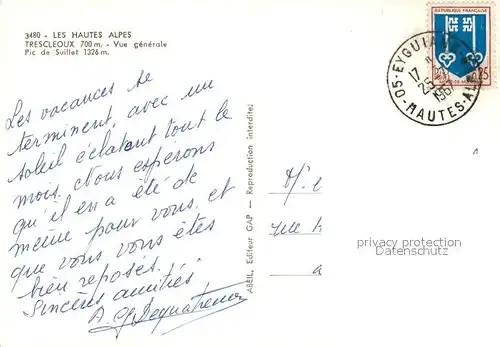 3480 - LES HAUTES ALPES
TRESCLEOUX 700 m. - Vue générale
Pic de Suillet 1326 m.
RÉPUBLIQUE FRANÇAISE
0,25
05-EYGUIANS
17
25
1967
HAUTES-ALPES
Les vacances se
terminent, avec un
soleil éclatant tout le
mois. Nous espérons
qu'il en a été de
même pour vous, et
que vous vous êtes
bien reposés.
Sincères amitiés
ABEIL, Editeur GAP - Reproduction interdite
privacy protection
Datenschutz